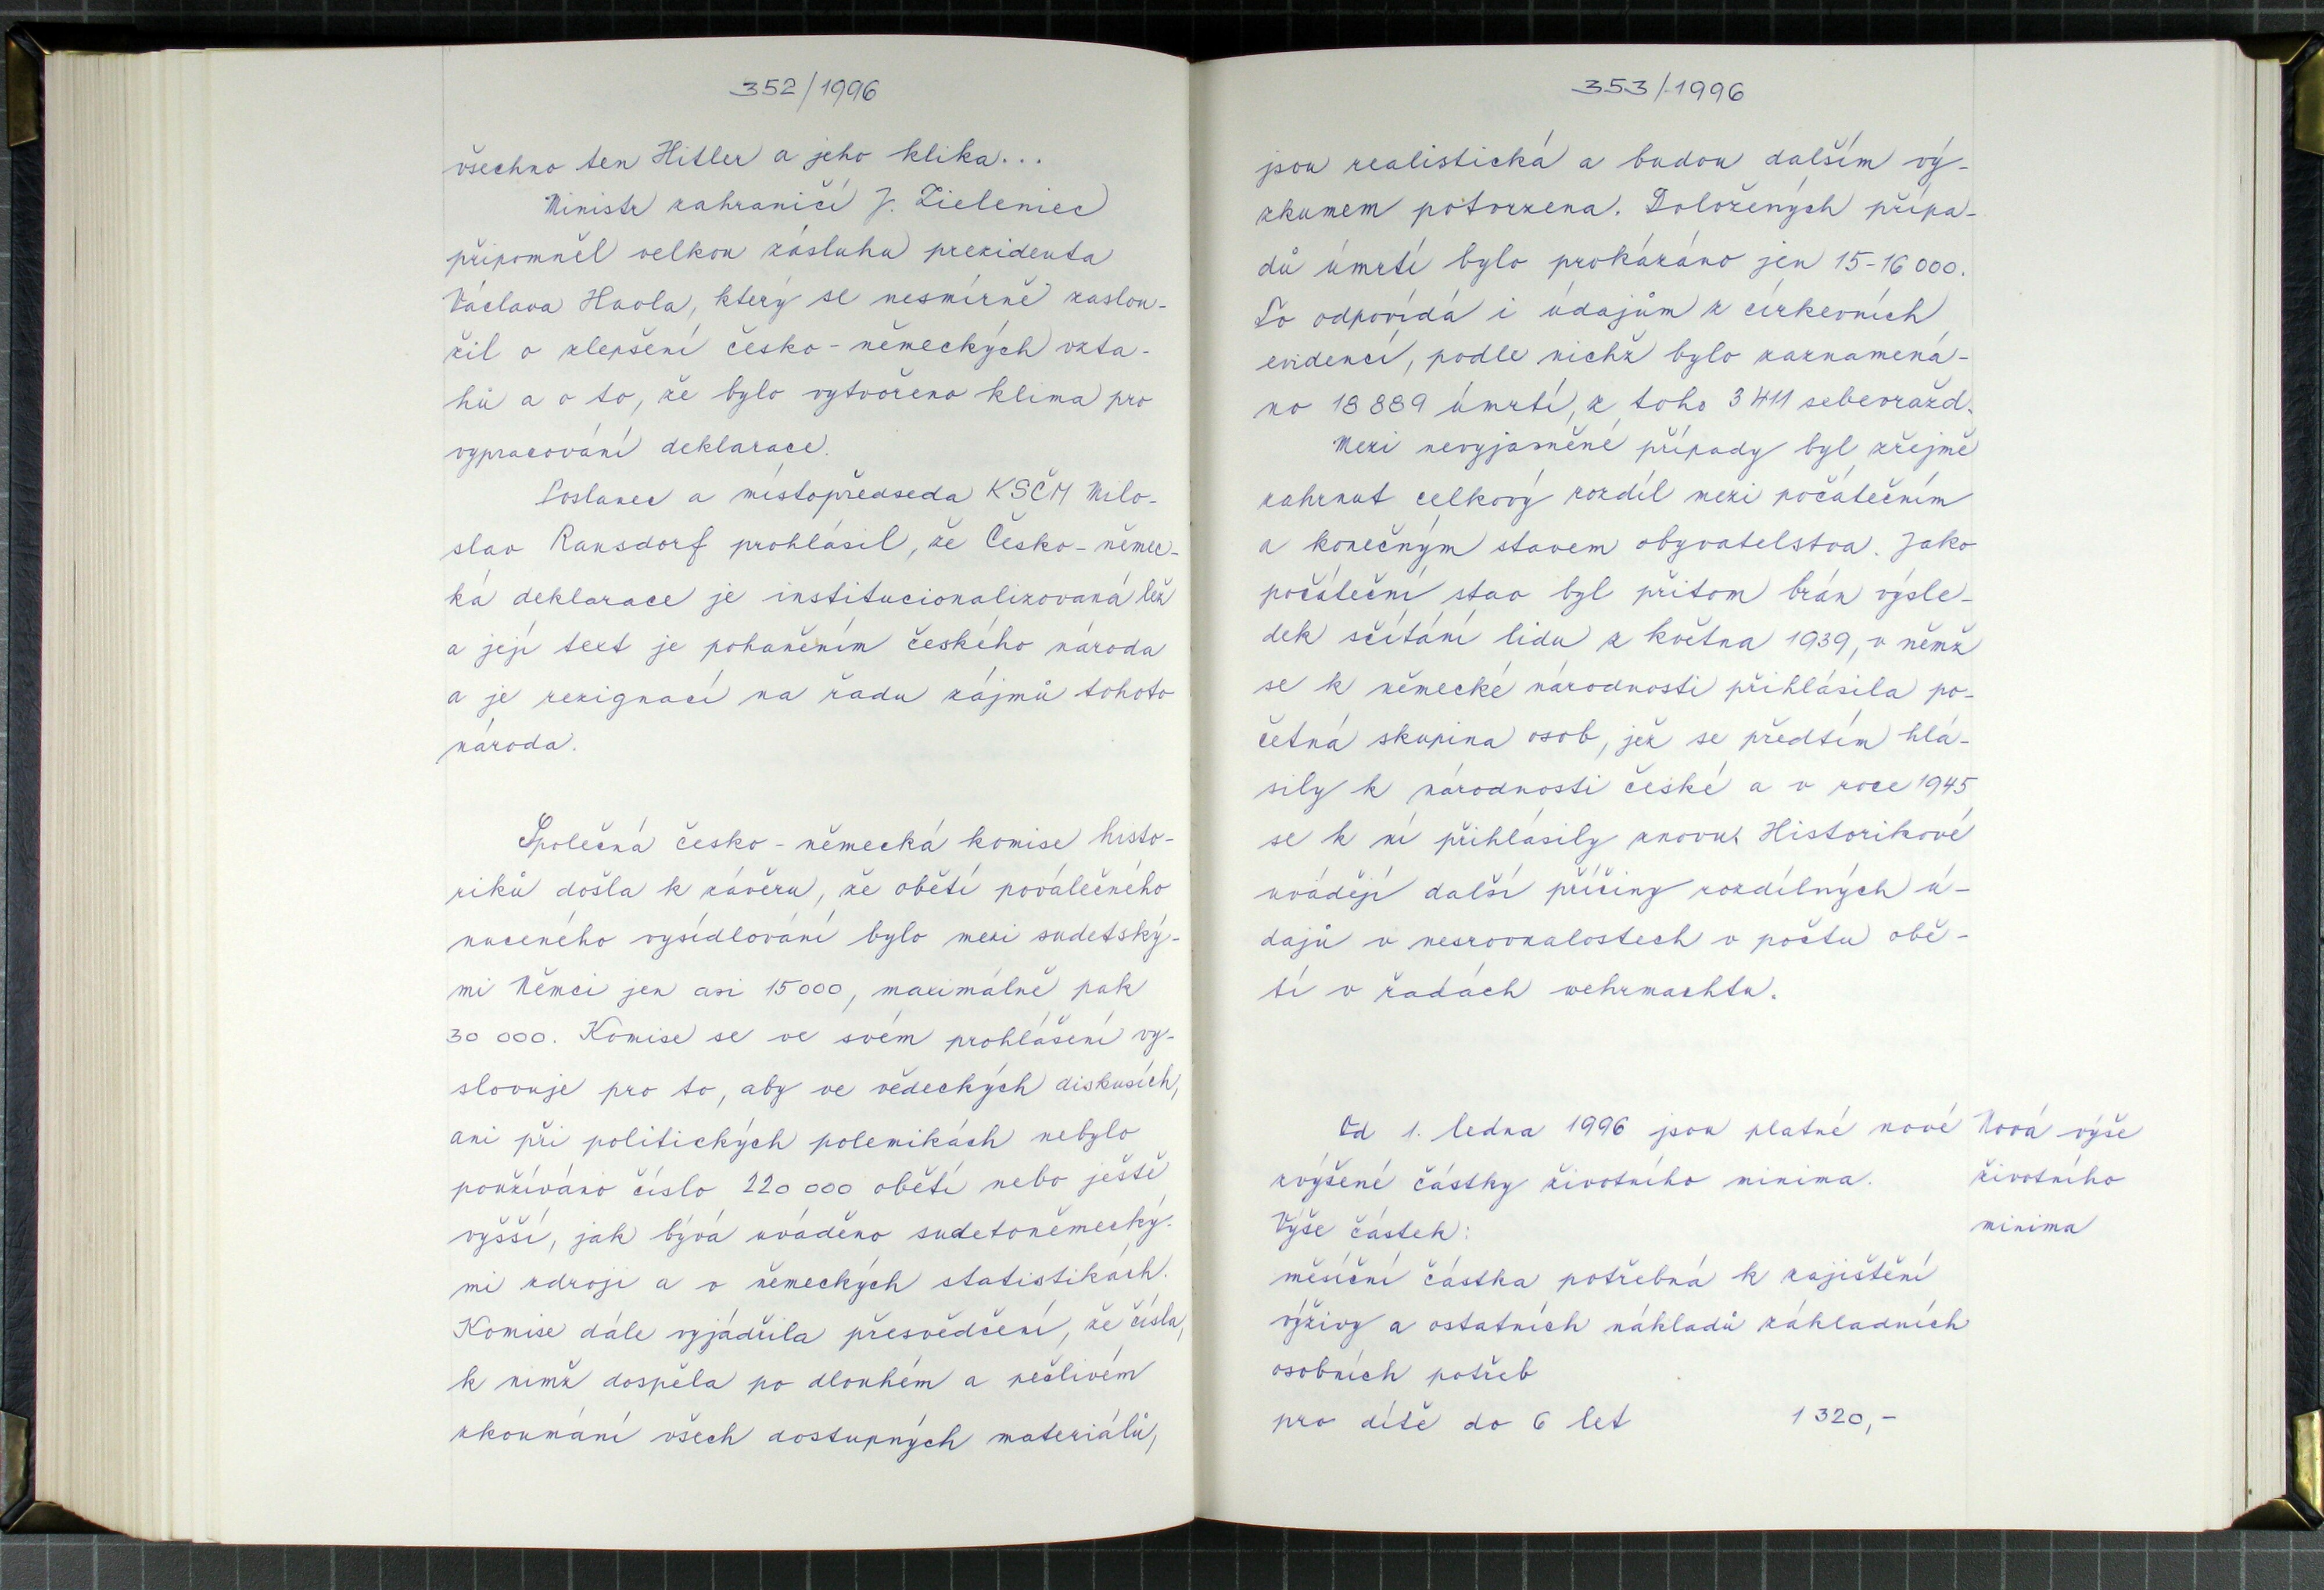 352/1996
všechno ten Hitler a jeho klika...
Ministr zahraničí J. Zieleniec
připomněl velkou zásluhu prezidenta
Václava Havla, který se nesmírně zaslou-
žil o zlepšení česko-německých vzta-
hů a o to, že bylo vytvořeno klima pro
vypracování deklarace.
Poslanec a místopředseda KSČM Milo-
slav Ransdorf prohlásil, že Česko-němec-
ká deklarace je institucionalizovaná lež
a její text je pohaněním českého národa
a je rezignací na řadu zájmů tohoto
národa.
Společná česko-německá komise histo-
riků došla k závěru, že obětí poválečného
nuceného vysídlování bylo mezi sudetský-
mi Němci jen asi 15000, maximálně pak
30 000. Komise se ve svém prohlášení vy-
slovuje pro to, aby ve vědeckých diskusích,
ani při politických polemikách nebylo
používáno číslo 220 000 obětí nebo ještě
vyšší, jak bývá uváděno sudetoněmecký-
mi zdroji a v německých statistikách.
Komise dále vyjádřila přesvědčení, že čísla,
k nimž dospěla po dlouhém a pečlivém
zkoumání všech dostupných materiálů,
353/1996
jsou realistická a budou dalším vý-
zkumem potvrzena. Doložených přípa-
dů úmrtí bylo prokázáno jen 15-16 000.
To odpovídá i údajům z církevních
evidencí, podle nichž bylo zaznamená-
no 18 889 úmrtí, z toho 3 411 sebevražd.
Mezi nevyjasněné případy byl zřejmě
zahrnut celkový rozdíl mezi počátečním
a konečným stavem obyvatelstva. Jako
počáteční stav byl přitom brán výsle-
dek sčítání lidu z května 1939, v němž
se k německé národnosti přihlásila po-
četná skupina osob, jež se předtím hlá-
sily k národnosti české a v roce 1945
se k ní přihlásily znovu. Historikové
uvádějí další příčiny rozdílných ú-
dajů v nesrovnalostech v počtu obě-
tí v řadách wehrmachtu.
Od 1. ledna 1996 jsou platné nové
zvýšené částky životního minima.
Výše částek:
měsíční částka potřebná k zajištění
výživy a ostatních nákladů základních
osobních potřeb
pro dítě do 6 let 1 320,-
Nová výše
životního
minima